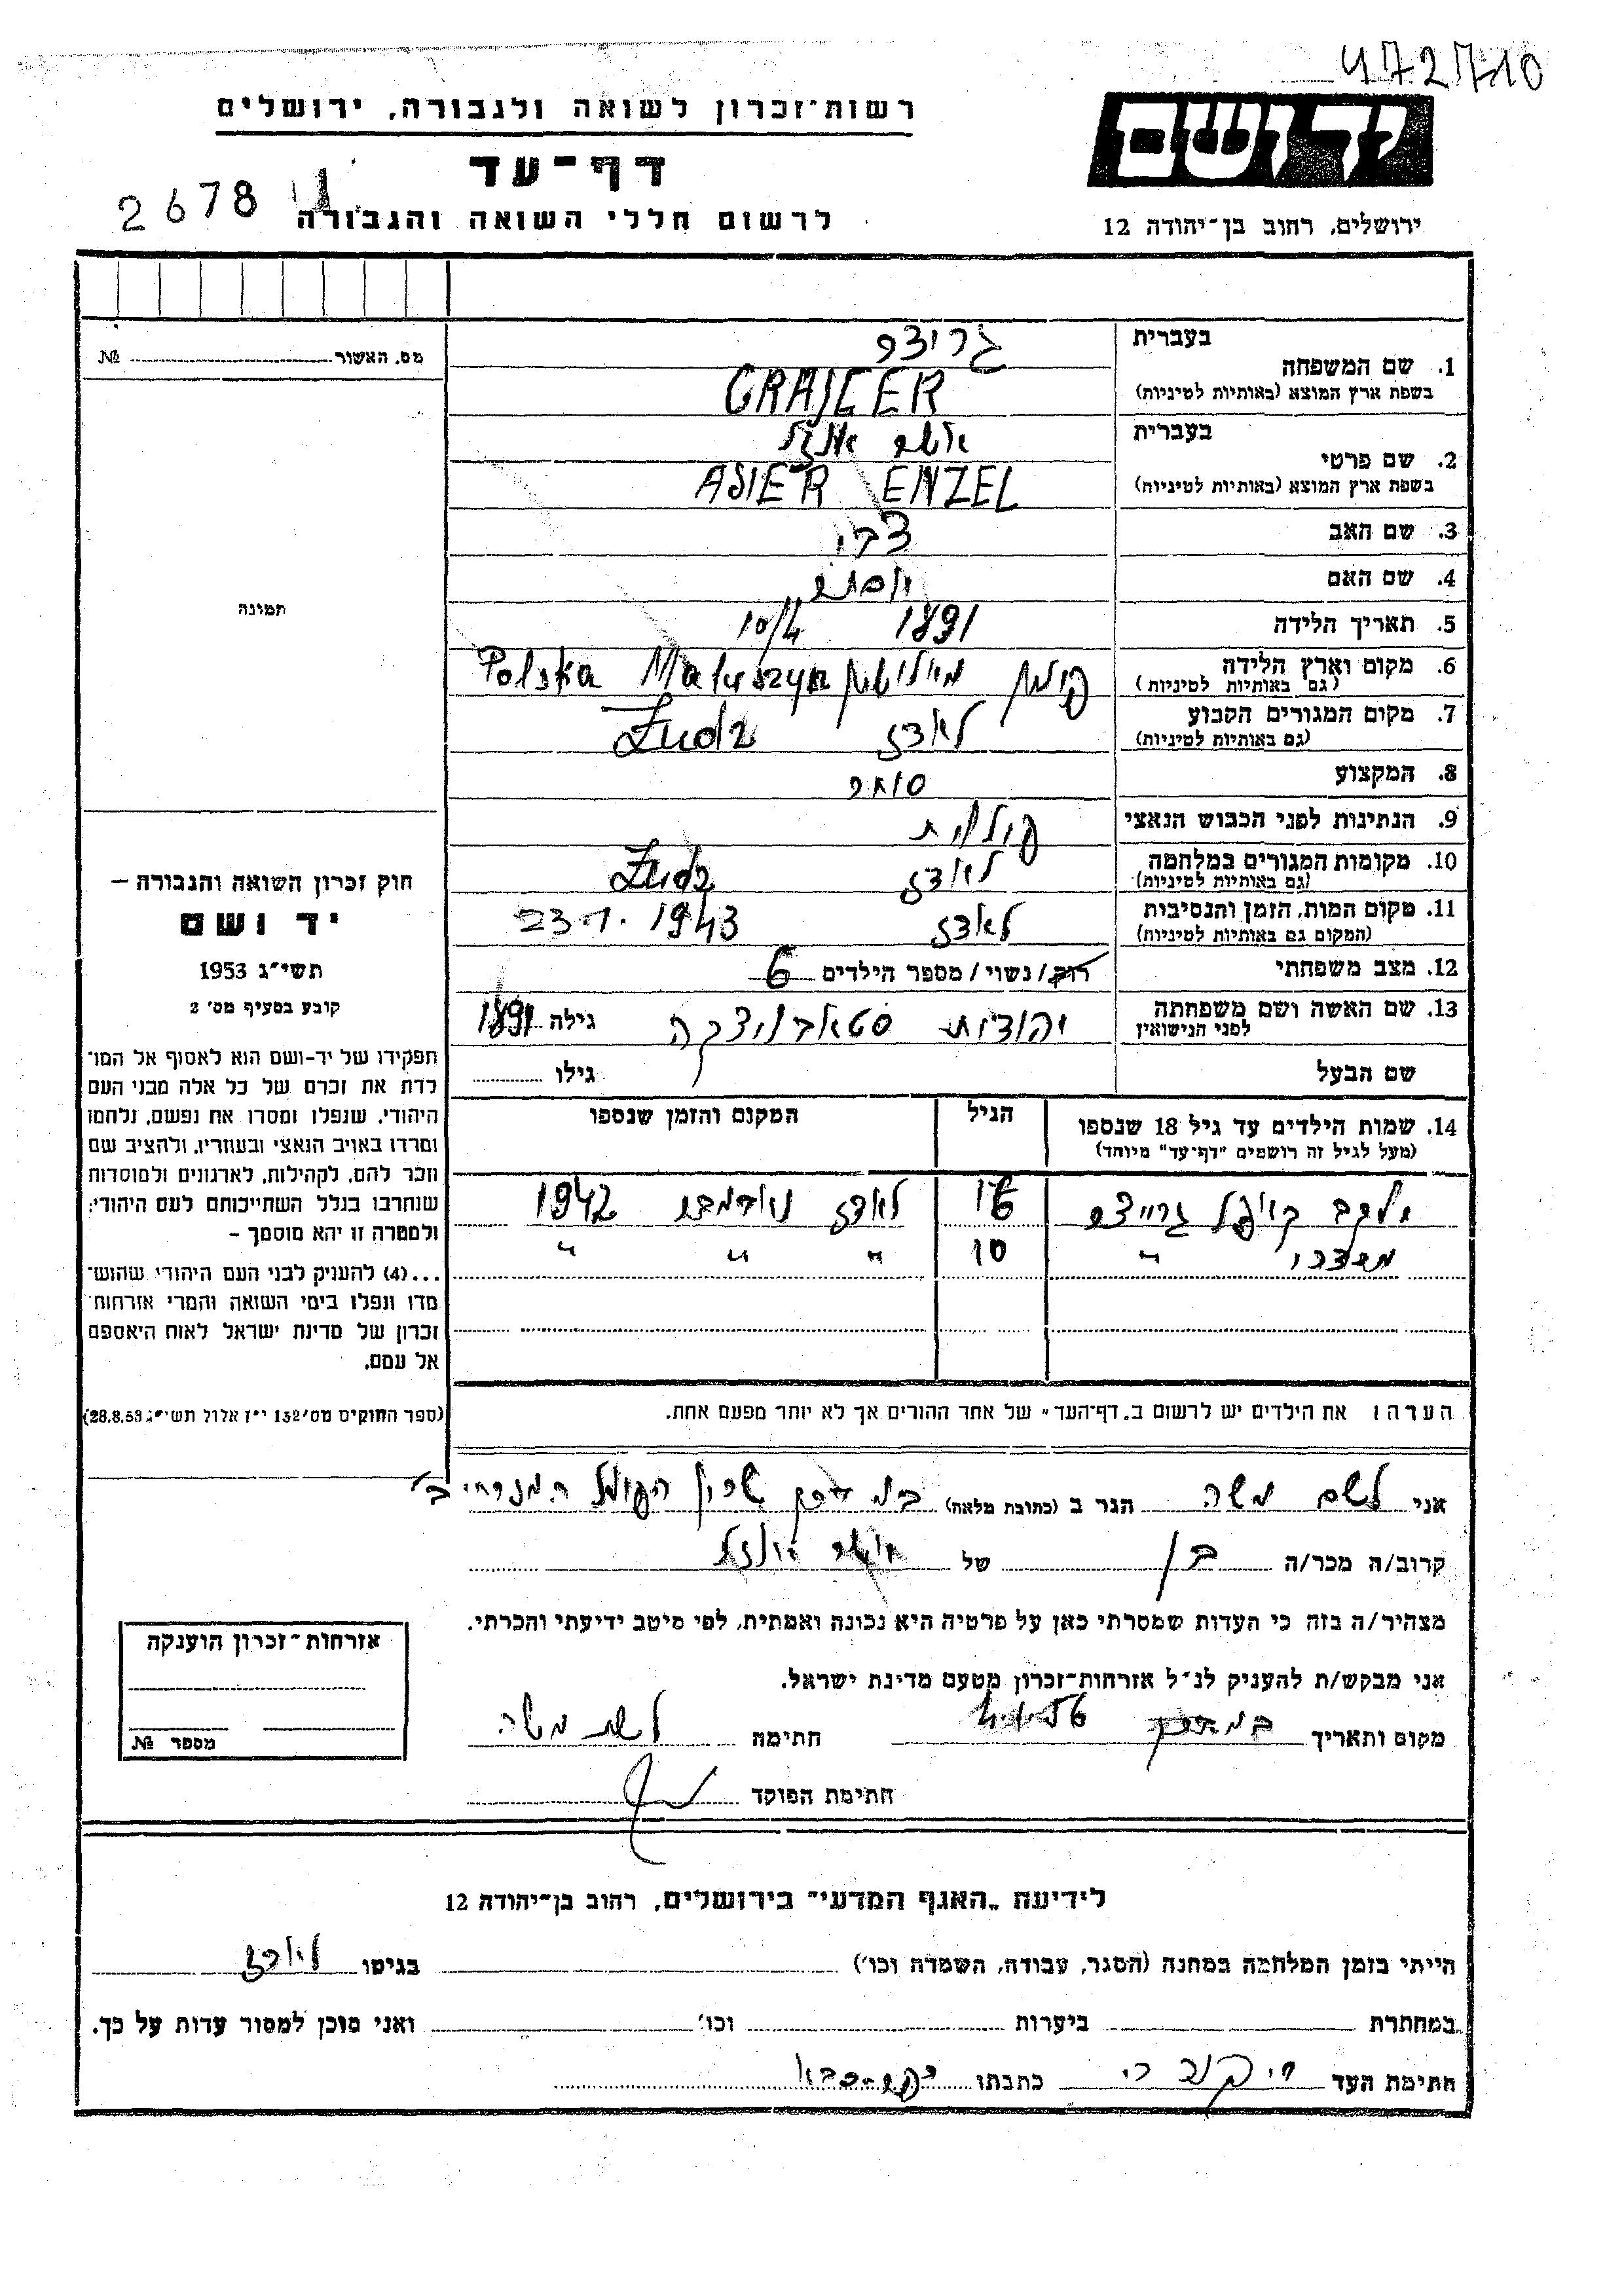 472710
רשות־זכרון לשואה ולגבורה, ירושלים
יד ושם
דף־עד
2678
לרשום חללי השואה והגבורה
ירושלים, רחוב בן־יהודה 12
מס. האשור № 
בעברית גריצר
1. שם המשפחה
בשפת ארץ המוצא (באותיות לטיניות) GRAJCER
בעברית אשר אנזל
2. שם פרטי
בשפת ארץ המוצא (באותיות לטיניות) ASIER ENZEL
3. שם האב צבי
4. שם האם
5. תאריך הלידה 1891 10/4
6. מקום וארץ הלידה פולין Maluszyn Polska
(גם באותיות לטיניות)
7. מקום המגורים הקבוע לאדז Łudz
(גם באותיות לטיניות)
8. המקצוע סוחר
9. הנתינות לפני הכבוש הנאצי פולנית
10. מקומות המגורים במלחמה לאדז Łudz
(גם באותיות לטיניות)
11. מקום המות, הזמן והנסיבות לאדז 23.1.1943
(המקום גם באותיות לטיניות)
12. מצב משפחתי רוק/נשוי/מספר הילדים 6
13. שם האשה ושם משפחתה יהודית גילה 1891
לפני הנישואין
שם הבעל גילו
תמונה
חוק זכרון השואה והגבורה –
יד ושם
תשי״ג 1953
קובע בסעיף מס׳ 2
תפקידו של יד-ושם הוא לאסוף אל המו־
לדת את זכרם של כל אלה מבני העם
היהודי, שנפלו ומסרו את נפשם, נלחמו
ומרדו באויב הנאצי ובעוזריו, ולהציב שם
וזכר להם, לקהילות, לארגונים ולמוסדות
שנחרבו בגלל השתייכותם לעם היהודי;
ולמטרה זו יהא מוסמך –
...(4) להעניק לבני העם היהודי שהוש־
מדו ונפלו בימי השואה והמרי אזרחות־
זכרון של מדינת ישראל לאות היאספם
אל עמם.
(ספר החוקים מס׳ 132 י״ז אלול תשי״ג 28.8.53)
14. שמות הילדים עד גיל 18 שנספו הגיל המקום והזמן שנספו
(מעל לגיל זה רושמים ״דף־עד״ מיוחד)
יעקב קופל גרייצר 16 לאדז 1942
מרדכי " 10 " " "
הערה: את הילדים יש לרשום ב„דף־העד״ של אחד ההורים אך לא יותר מפעם אחת.
אני לשם משה הגר ב (כתובת מלאה) שכון הפועל המזרחי ב'
קרוב/ה מכר/ה בן של אשר אנזל
מצהיר/ה בזה כי העדות שמסרתי כאן על פרטיה היא נכונה ואמתית, לפי מיטב ידיעתי והכרתי.
אני מבקש/ת להעניק לנ״ל אזרחות־זכרון מטעם מדינת ישראל.
מקום ותאריך חתימה לשם משה
חתימת הפוקד
אזרחות־זכרון הוענקה
מספר №
לידיעת „האגף המדעי״ בירושלים, רחוב בן־יהודה 12
הייתי בזמן המלחמה במחנה (הסגר, עבודה, השמדה וכו׳) בגיטו לאדז
במחתרת ביערות וכו׳ ואני מוכן למסור עדות על כך.
חתימת העד כתבתו